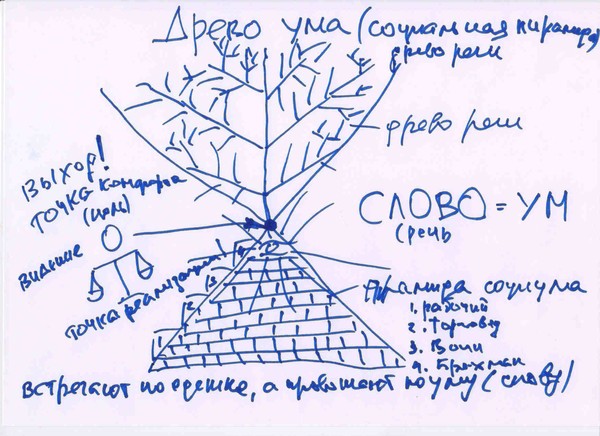 Древо ума (социальная пирамида)
древо речи
древо речи
Выход!
точка комфорта
(цель)
СЛОВО = УМ
(речь
видение
точка реализации!
пирамида социума
1. рабочий
2. торговец
3. Воин
4. Брахман
1
2
3
встречают по одежке, а провожают по уму (слову)